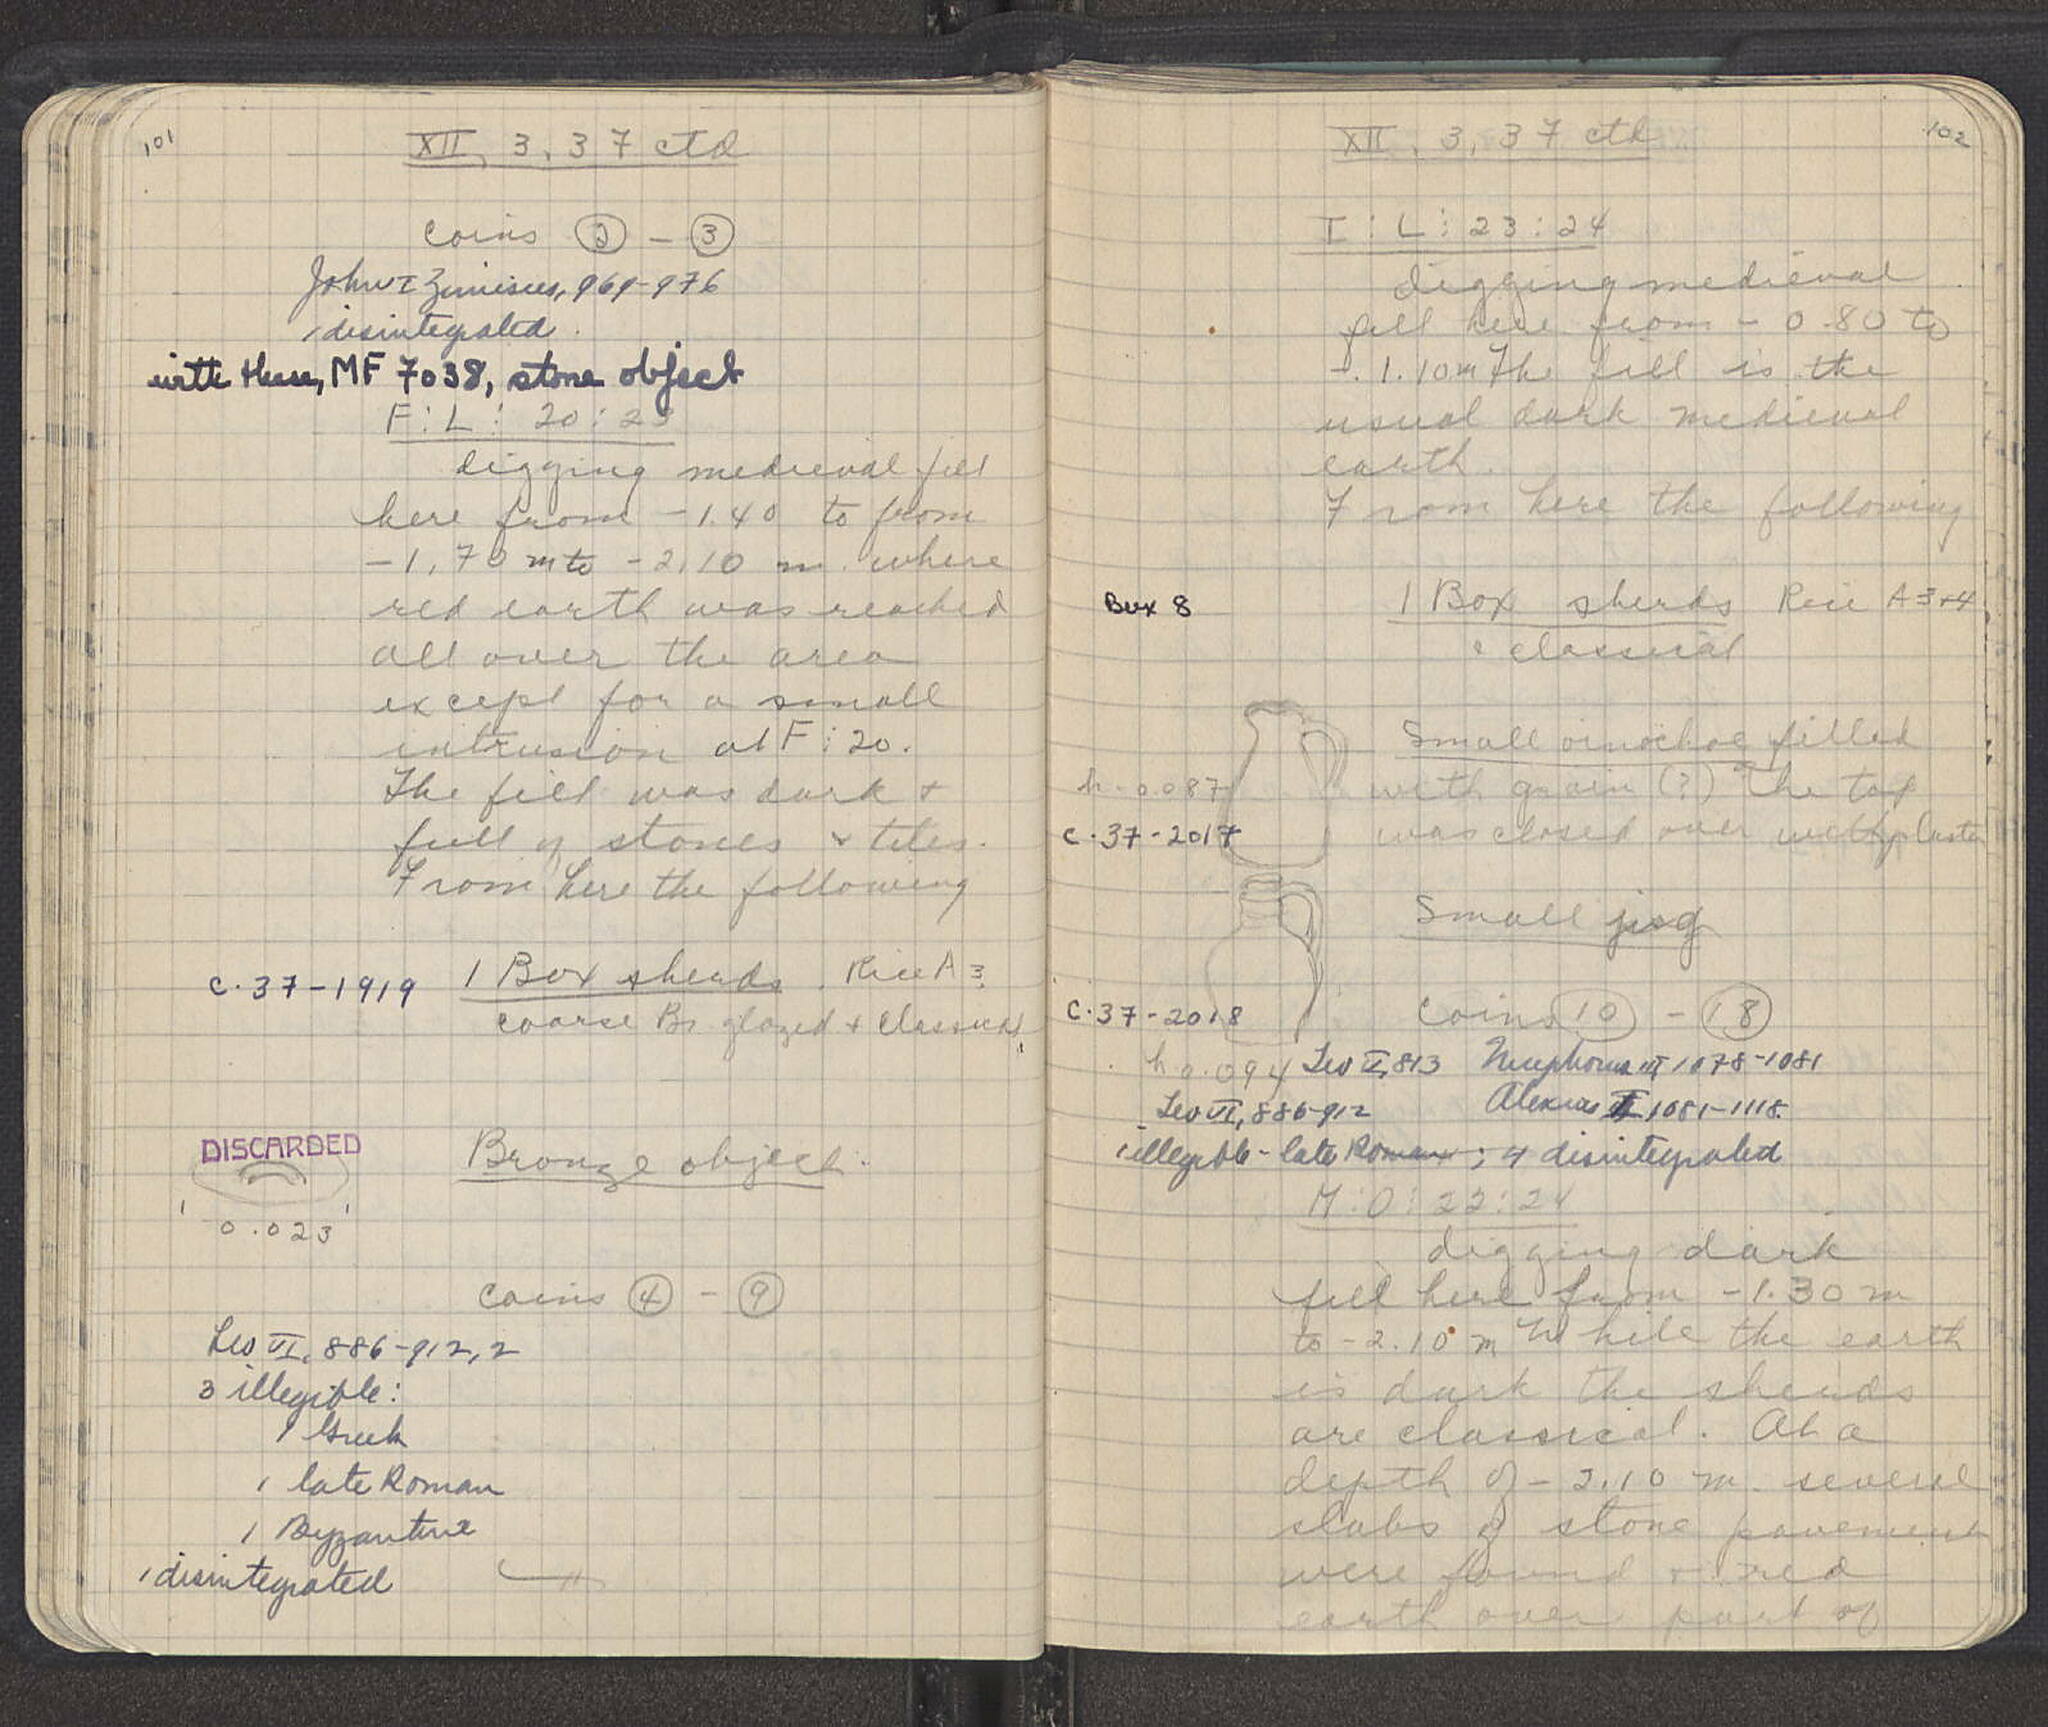 101
XII, 3, 37 ctd
Coins 2 - 3
John I Zimisces, 969-976
1 disintegrated
with these, MF 7038, stone object
F:L: 20:23
digging medieval fill
here from -1.40 to from
-1.70 m to -2.10 m. where
red earth was reached
all over the area
except for a small
intrusion at F:20.
The fill was dark +
full of stones + tiles.
From here the following
C.37-1919 1 Box sherds. Rice A 3
coarse Br glazed + classical
DISCARDED
Bronze object.
0.023
Coins 4 - 9
Leo VI, 886-912, 2
3 illegible:
1 Greek
1 late Roman
1 Byzantine
1 disintegrated
102
XII, 3, 37 ctd
I:L:23:24
digging medieval
fill here from - 0.80 to
-1.10 m The fill is the
usual dark medieval
earth.
From here the following
Box 8 1 Box sherds Rice A 3+4
classical
Small oinochoe filled
h-0.087 with grain (?) The top
C.37-2017 was closed over with plaster
Small jug
C.37-2018 Coins 10 - 18
h 0.094 Leo V, 813 Nicephorus III 1078-1081
Leo VI, 886-912 Alexius I 1081-1118
1 illegible - late Roman; 4 disintegrated
M:O:22:24
digging dark
fill here from -1.30 m
to -2.10 m While the earth
is dark the sherds
are classical. At a
depth of -2.10 m. several
slabs of stone pavement
were found + red
earth over part of